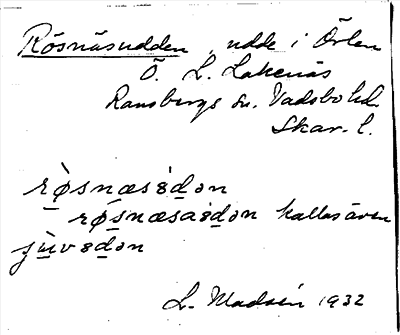 Rösnäsudden, udde i Örlen
Ö. L. Lakenäs
Ransbergs sn. Vadsbo hd.
Skar. l.
rø̀snæsɵ́dən
rǿsnæsaɵ̀dən kallas även
sjʉ̀vɵdən
L. Madsén 1932